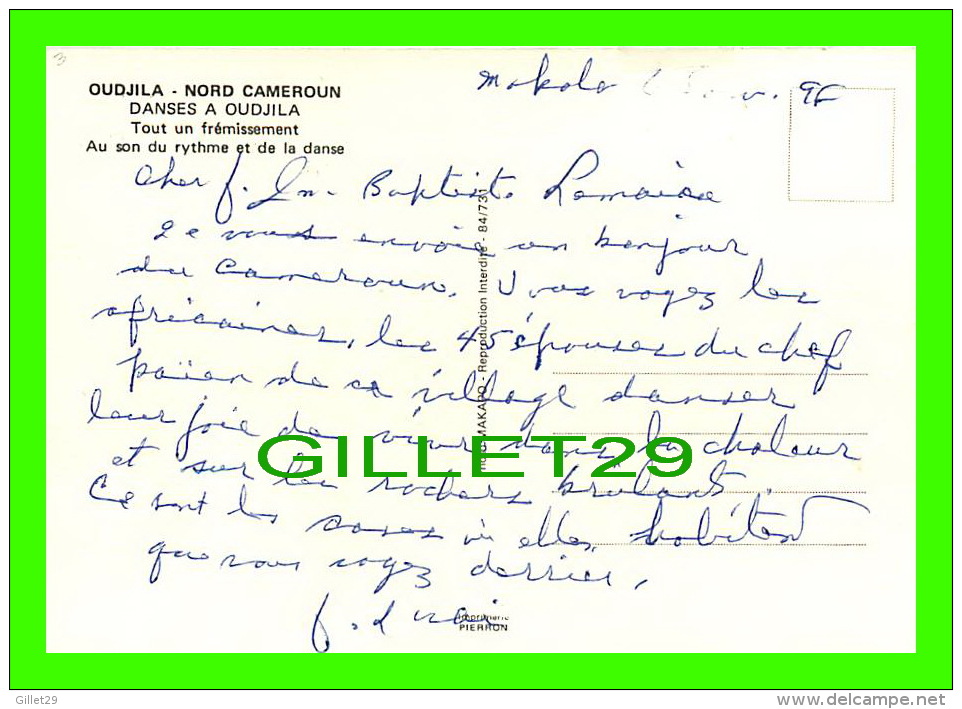 OUDJILA - NORD CAMEROUN
DANSES A OUDJILA
Tout un frémissement
Au son du rythme et de la danse
Mokolo
Cher f. Jn-Baptiste
Je vous envoie un bonjour
du Cameroun. Vous voyez les
africaines, les 45 épouses du chef
païen de ce village danser
leur joie de vivre dans la chaleur
et sur les rochers brulants.
Ce sont les cases où elles habitent
que vous voyez derrière.
MAKAPO - Reproduction Interdite - 84/731
GILLET29
Imprimerie
PIERRON
Gillet29
www.delcampe.net